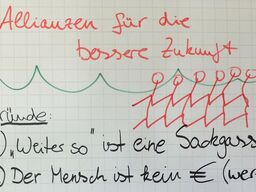 Allianzen für die
bessere Zukunft
ründe:
) „Weiter so" ist eine Sackgass
) Der Mensch ist kein € (wer